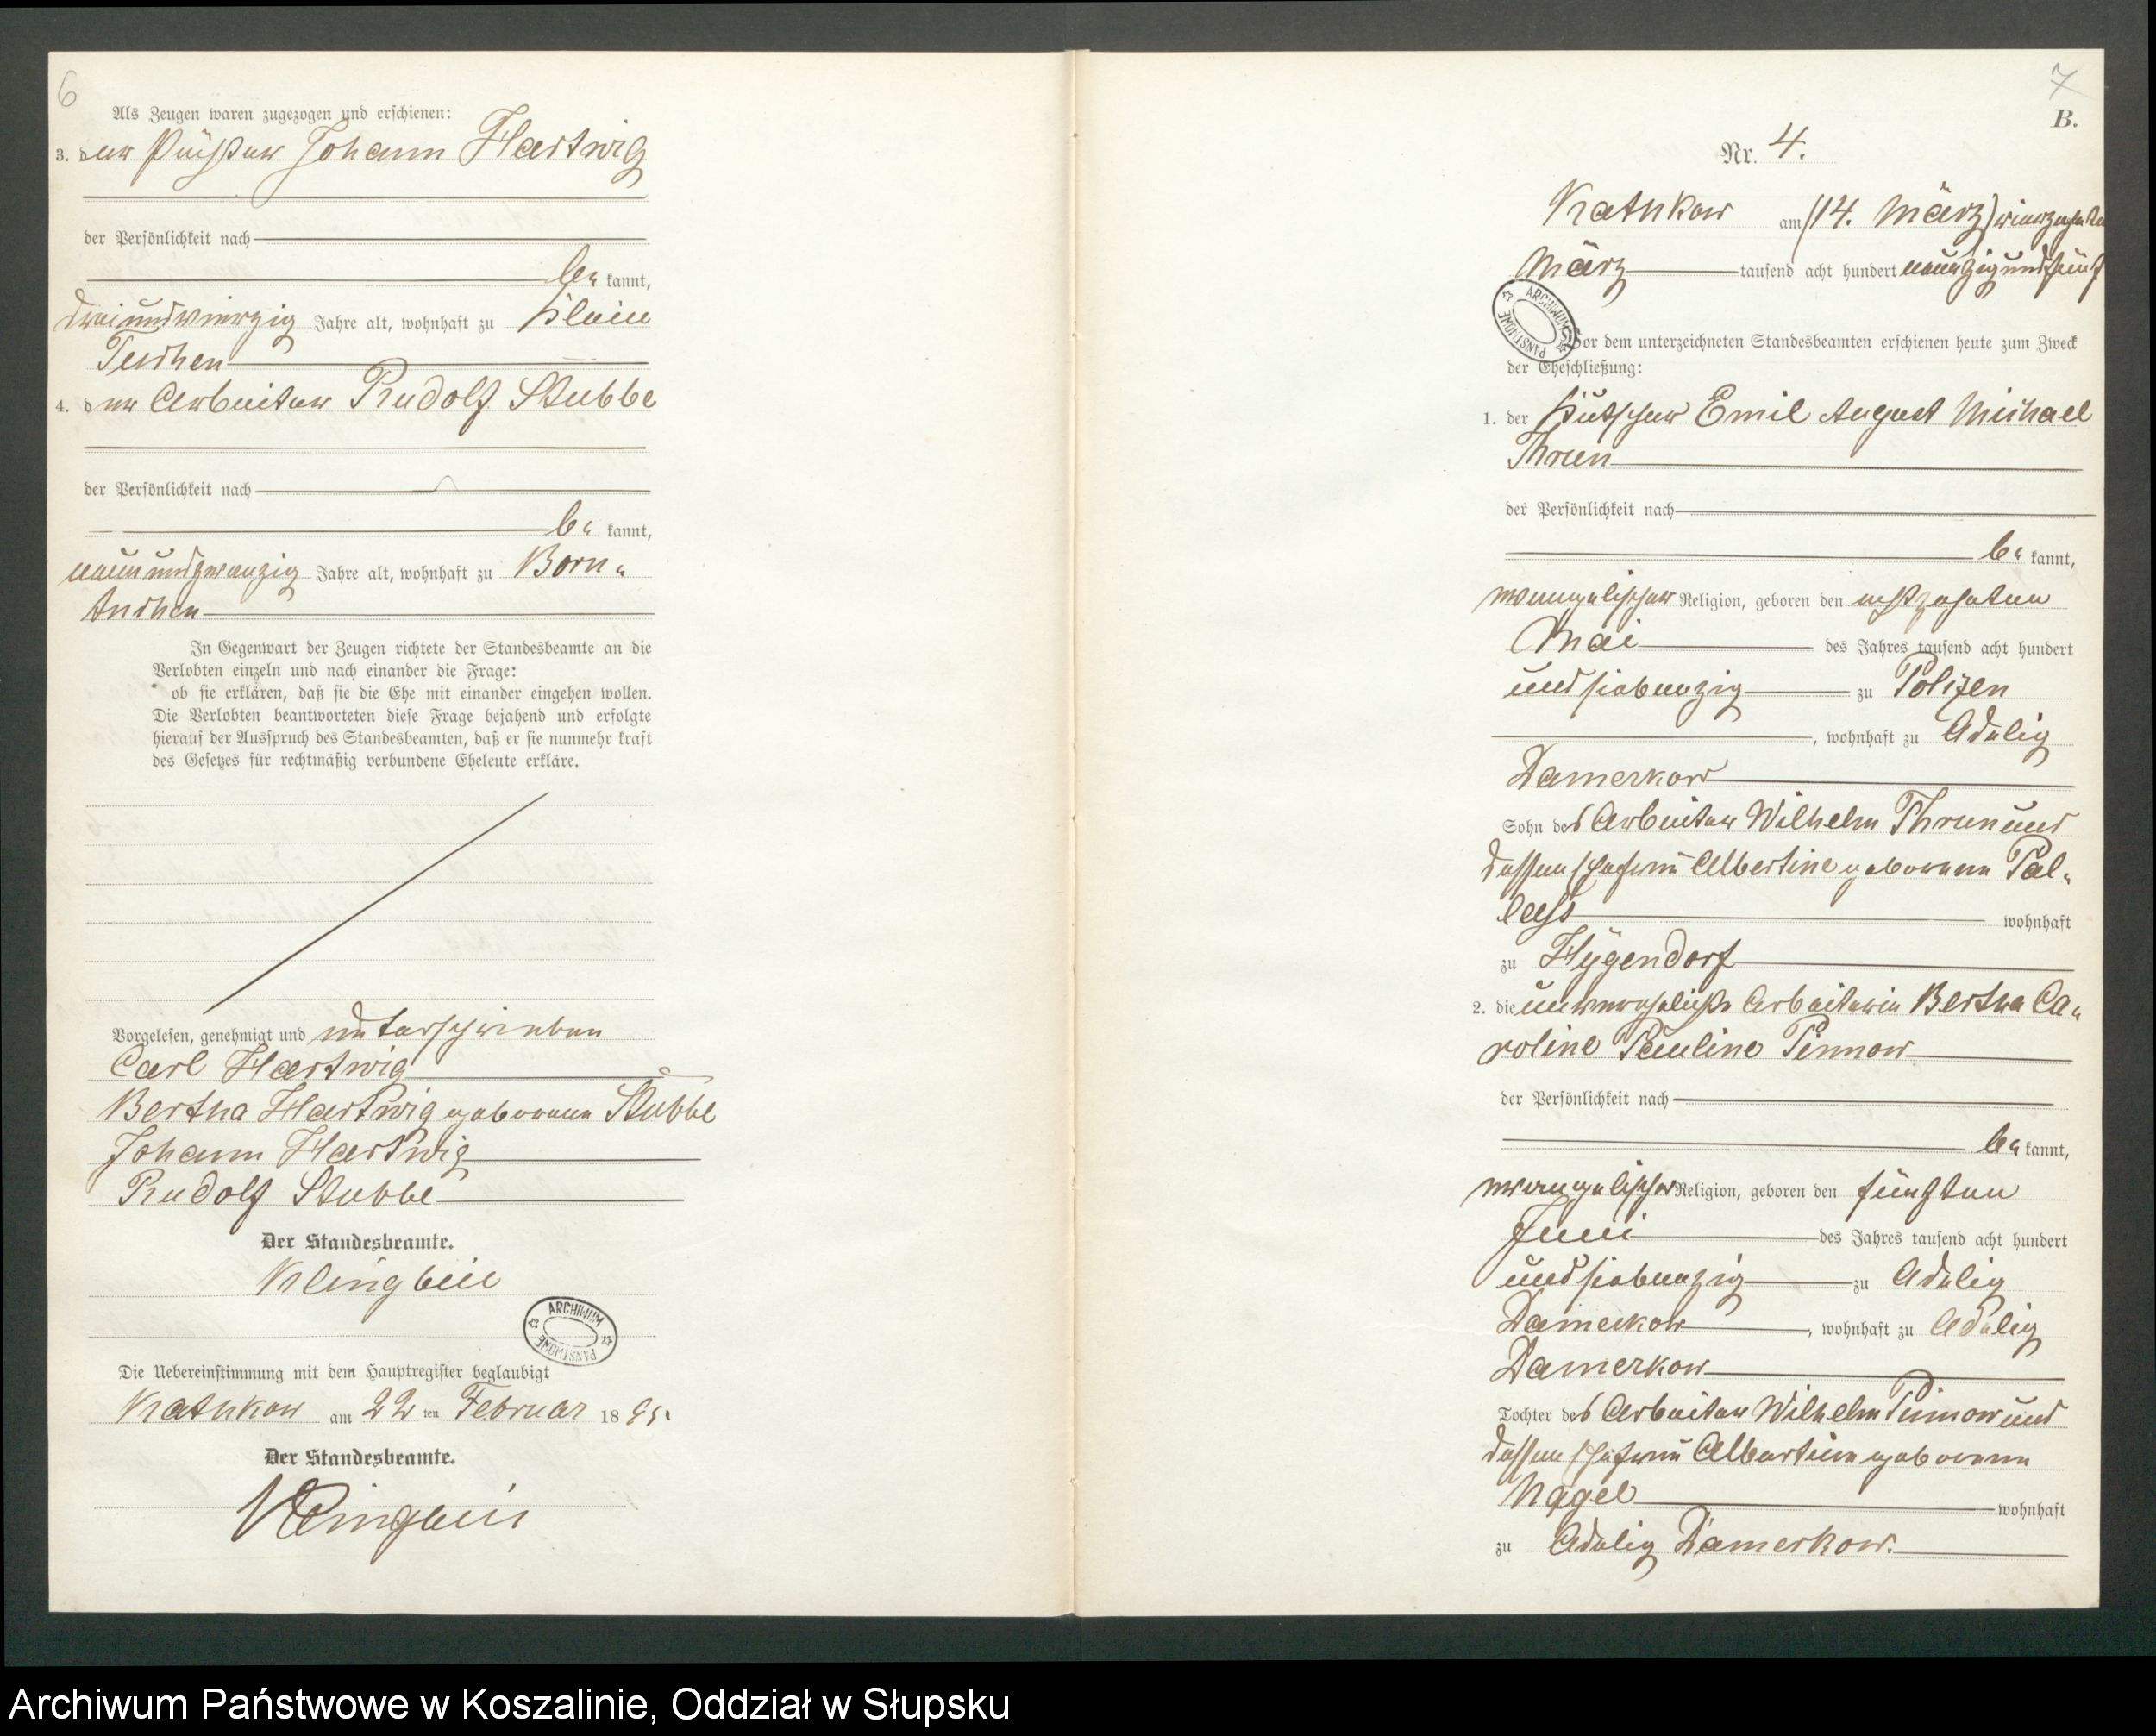 6
Als Zeugen waren zugezogen und erschienen:
3. der Pächter Johann Hartwig
der Persönlichkeit nach
be kannt,
dreiundvierzig Jahre alt, wohnhaft zu Klein
Tuchen
4. der Arbeiter Rudolf Stubbe
der Persönlichkeit nach
be kannt,
neunundzwanzig Jahre alt, wohnhaft zu Born-
tuchen
In Gegenwart der Zeugen richtete der Standesbeamte an die
Verlobten einzeln und nach einander die Frage:
ob sie erklären, daß sie die Ehe mit einander eingehen wollen.
Die Verlobten beantworteten diese Frage bejahend und erfolgte
hierauf der Ausspruch des Standesbeamten, daß er sie nunmehr kraft
des Gesetzes für rechtmäßig verbundene Eheleute erkläre.
Vorgelesen, genehmigt und unterschrieben
Carl Hartwig
Bertha Hartwig geborene Stubbe
Johann Hartwig
Rudolf Stubbe
Der Standesbeamte.
Klingbeil
ARCHIWUM PAŃSTWOWE
Die Uebereinstimmung mit dem Hauptregister beglaubigt
Kathkow am 22 ten Februar 18 95.
Der Standesbeamte.
Klingbeil
7
B.
Nr. 4.
Kathkow am (14. März) vierzehnten
März tausend acht hundert neunzig und fünf
ARCHIWUM PAŃSTWOWE
Vor dem unterzeichneten Standesbeamten erschienen heute zum Zweck
der Eheschließung:
1. der Kutscher Emil August Michael
Thrun
der Persönlichkeit nach
be kannt,
evangelischer Religion, geboren den achtzehnten
Mai des Jahres tausend acht hundert
und siebenzig zu Polizen
, wohnhaft zu Adelig
Damerkow
Sohn des Arbeiter Wilhelm Thrun und
dessen Ehefrau Albertine geborenen Pal-
lass wohnhaft
zu Hygendorf
2. die unverehelichte Arbeiterin Bertha Ca-
roline Pauline Pinnow
der Persönlichkeit nach
be kannt,
evangelischer Religion, geboren den fünften
Juni des Jahres tausend acht hundert
und siebenzig zu Adelig
Damerkow, wohnhaft zu Adelig
Damerkow
Tochter des Arbeiter Wilhelm Pinnow und
dessen Ehefrau Albertine geborenen
Nagel wohnhaft
zu Adelig Damerkow.
Archiwum Państwowe w Koszalinie, Oddział w Słupsku